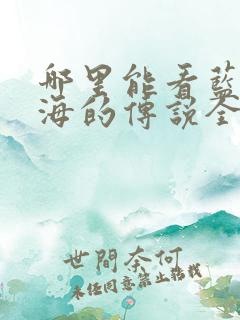 哪里能看蓝
海的傳說全
世間奈何
未经同意禁止转载